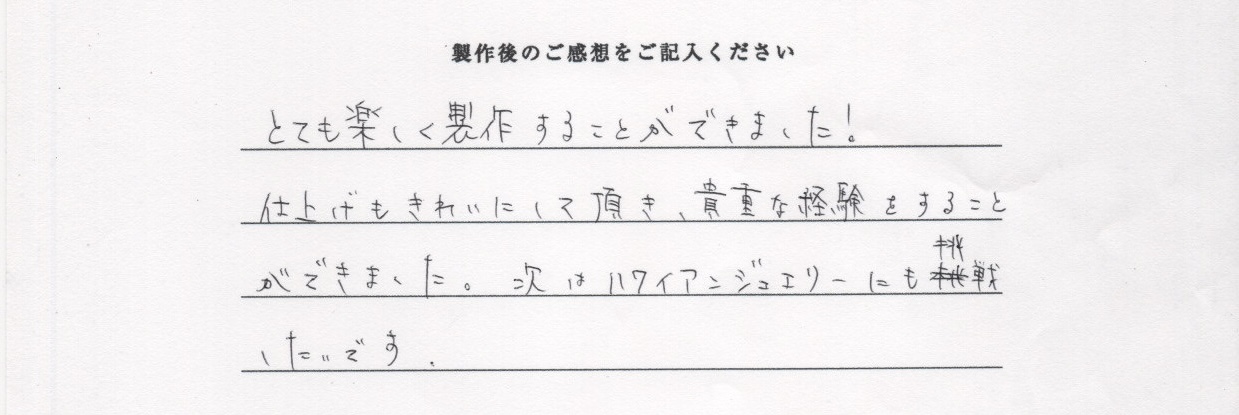 製作後のご感想をご記入ください
とても楽しく製作することができました!
仕上げもきれいにして頂き、貴重な経験をすること
ができました。次はハワイアンジュエリーにも挑戦
したいです.